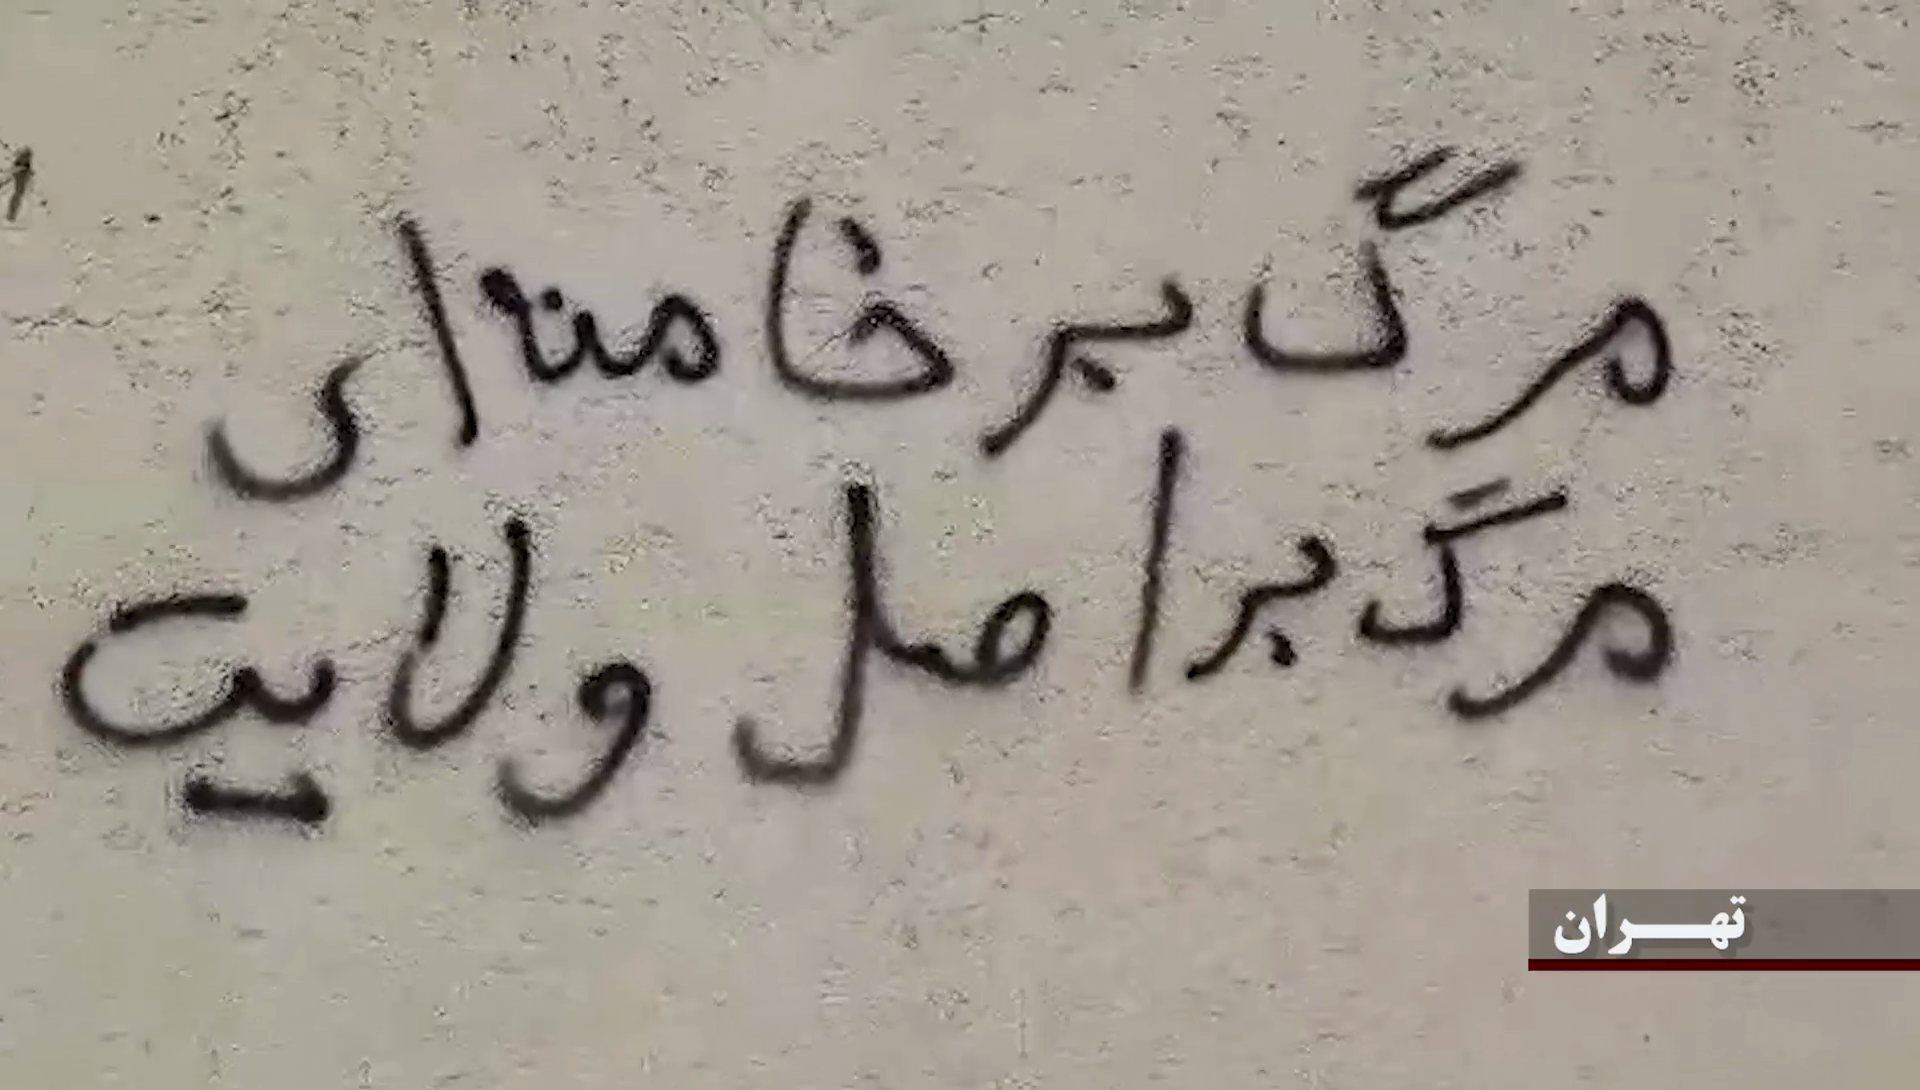 مرگ بر خامنه ای
مرگ بر اصل ولایت
تهران